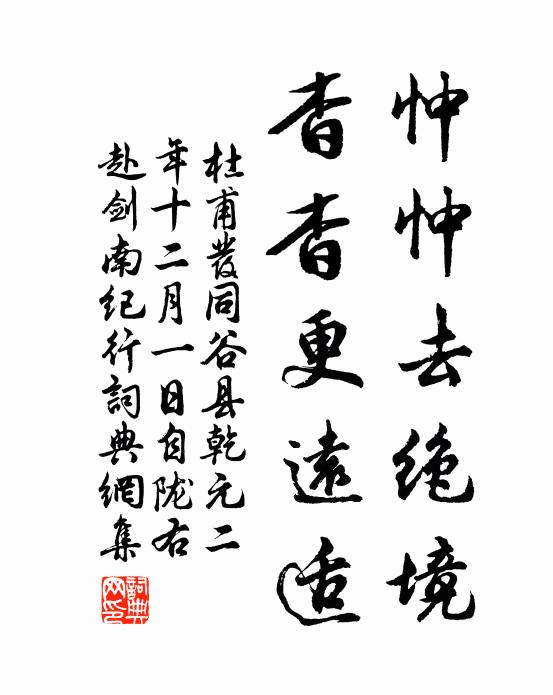 忡忡去絶境
杳杳更遠适
杜甫發同谷县乾元二
年十二月一日自陇右
赴剑南纪行詞典網集
詞典